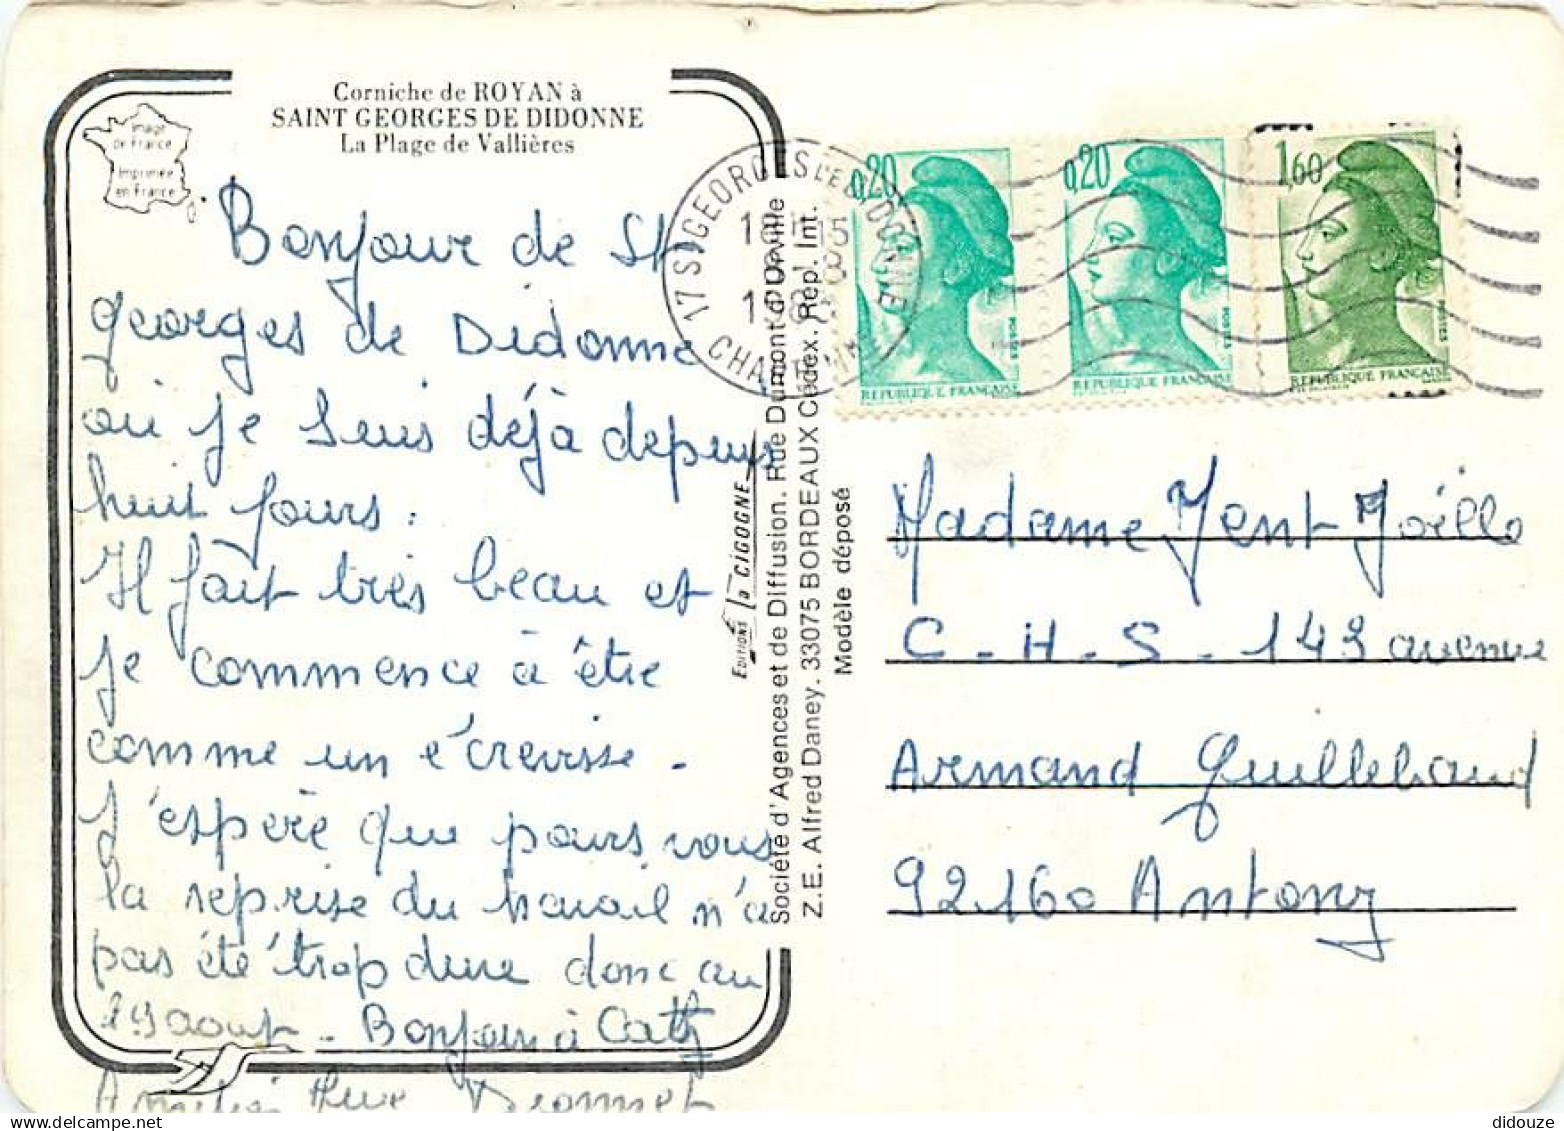 Corniche de ROYAN à
SAINT GEORGES DE DIDONNE
La Plage de Vallières
Image
de France
Imprimée
en France
Bonjour de St
Georges de Didonne
où je suis déjà depuis
huit jours.
Il fait très beau et
je commence à être
comme un écrevisse.
J'espère que pours vous
la reprise du travail n'a
pas été trop dure donc au
19 aout - Bonjour à Cathy
EDITIONS la CIGOGNE
Société d'Agences et de Diffusion. Rue Dumont d'Durville
Z.E. Alfred Daney. 33075 BORDEAUX Cédex. Rep. Int.
Modèle déposé
17 ST GEORGES DE DIDONNE
0,20
0,20
1,60
POSTES
POSTES
POSTES
REPUBLIQUE FRANÇAISE
REPUBLIQUE FRANÇAISE
REPUBLIQUE FRANÇAISE
Madame Yent Joëlle
C.H.S. 149 avenue
Armand Guillebaud
92160 Antony
didouze